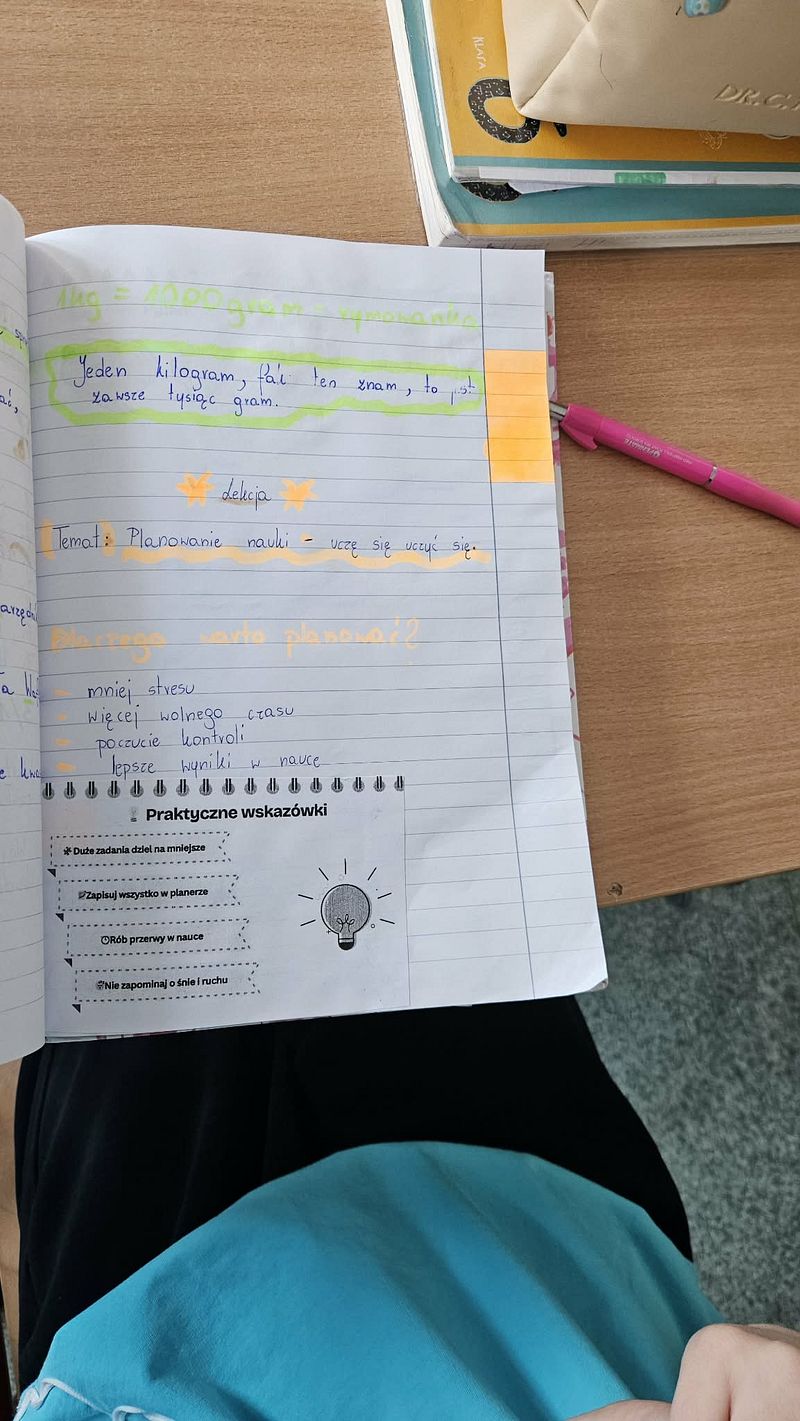 KLASA
DR.C.
1kg = 1000gram - rymowanka
Jeden kilogram, fakt ten znam, to jest
zawsze tysiąc gram.
Lekcja
Temat: Planowanie nauki - uczę się uczyć się.
Dlaczego warto planować?
- mniej stresu
- więcej wolnego czasu
- poczucie kontroli
- lepsze wyniki w nauce
Praktyczne wskazówki
Duże zadania dziel na mniejsze
Zapisuj wszystko w planerze
Rób przerwy w nauce
Nie zapominaj o śnie i ruchu